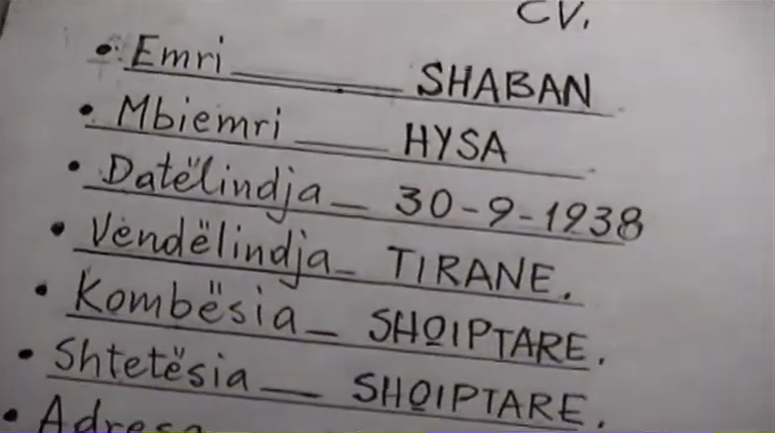 CV.
• Emri ____ SHABAN
• Mbiemri ____ HYSA
• Datëlindja _ 30-9-1938
• Vendëlindja _ TIRANE.
• Kombësia _ SHQIPTARE.
• Shtetësia __ SHQIPTARE.
• Adresa